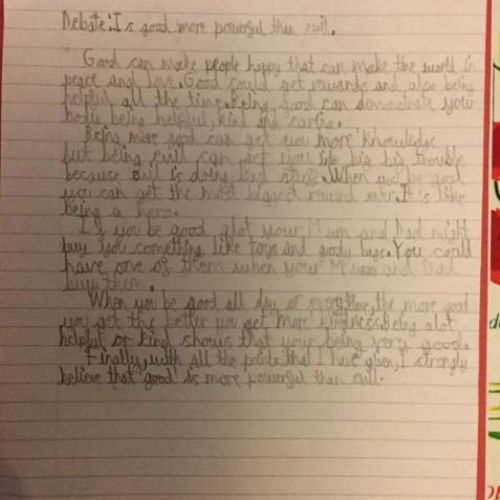 Debate: Is good more powerful than evil.
Good can make people happy that can make the world in
peace and love. Good could get rewards and also being
helpful all the time. Being good can demonstrate your
body being helpful, kind and caring.
Being more good can get you more knowledge
but being evill can get you in big big trouble
because evil is doing bad stuff. When you be good
you can get the most biggest reward ever. It's like
being a hero.
If you be good alot your Mum and Dad might
buy you something like toys and gody bags. You could
have one of them when your Mum and Dad
buy them.
When you be good all day or everytime, the more good
you get the better you get more kindness. Being alot
helpful or kind shows that your being very good.
Finally, with all the points that I have given, I strongly
believe that good is more powerful than evil.